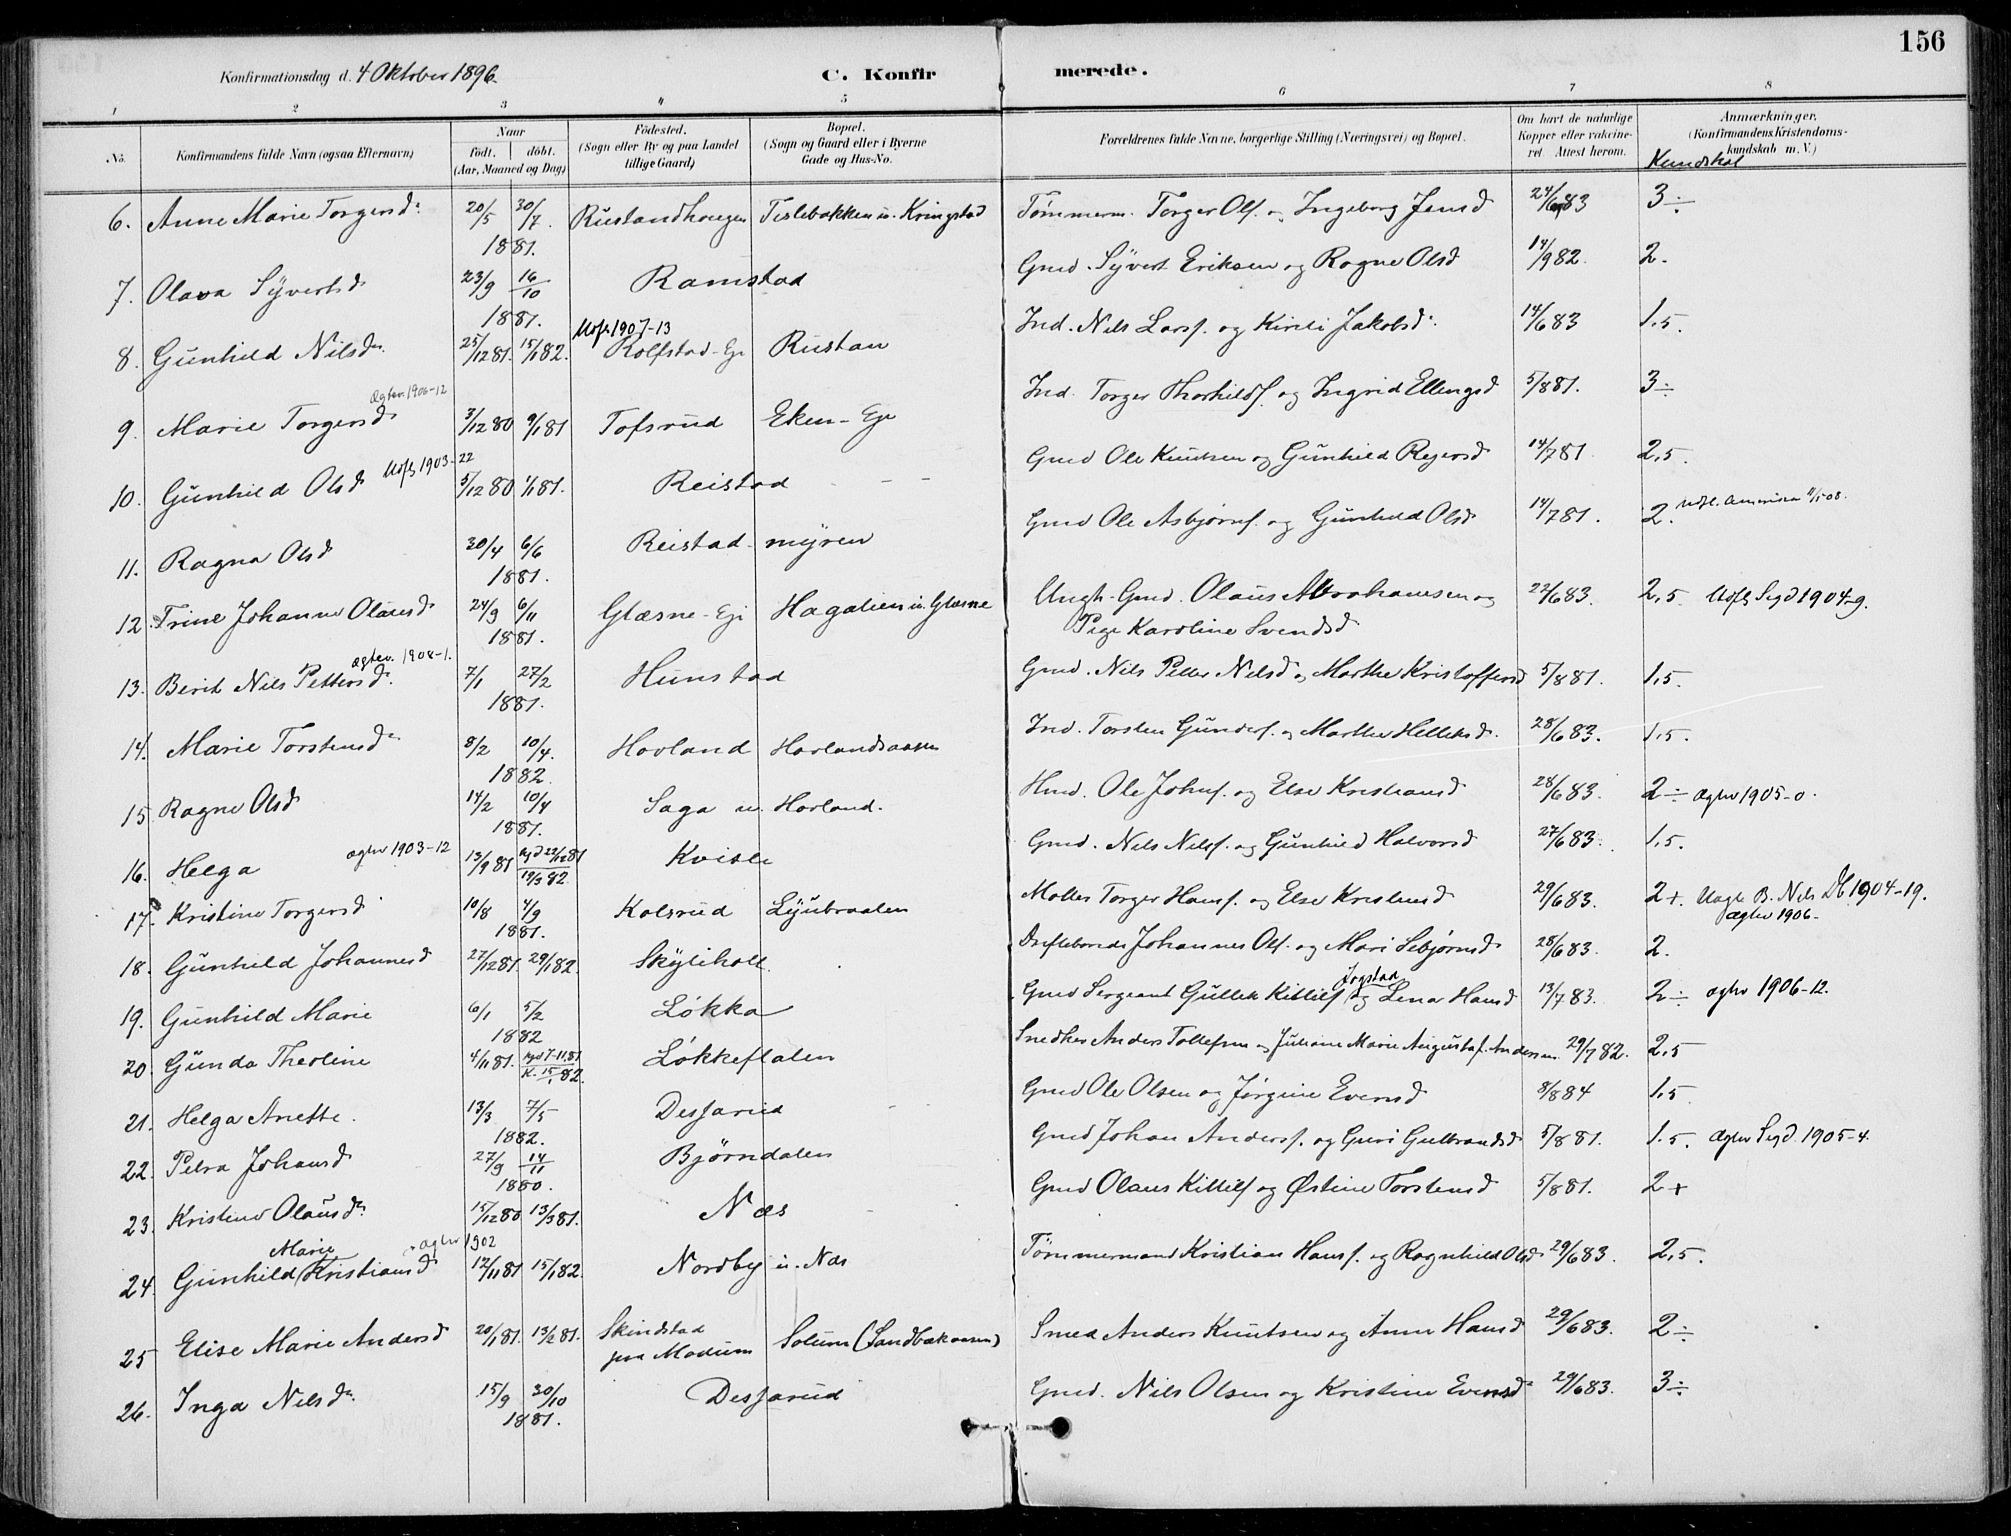 156
Konfirmationsdag d. 4 Oktober 1896.
C. Konfirmerede.
1 2 3 4 5 6 7 8
No. Konfirmandens fulde Navn (ogsaa Efternavn) Naar født, døbt. (Aar, Maaned og Dag) Fødested. (Sogn eller By og paa Landet tillige Gaard) Bopæl. (Sogn og Gaard eller i Byerne Gade og Hus-No. Forældrenes fulde Navne, borgerlige Stilling (Næringsvei) og Bopæl. Om havt de naturlige Kopper eller vakcineret. Attest herom. Anmærkninger, (Konfirmandens Kristendomskundskab m. V.)
Kundskab
6. Anne Marie Torgersd. 20/5 30/7 1881. Rustandhougen Tislebakken u. Kringstad Tømmerm. Torger Ols. og Ingeborg Jensd 24/6 83 3÷
7. Olava Syvertsd 23/9 16/10 1881. Ramstad Gmd. Syvert Eriksen og Ragne Olsd 14/9 82. 2.
8. Gunhild Nilsd. 25/12 81. 15/1 82. Udfl. 1907-13 Rolfstad-Eje Rustan Ind. Nils Larss. og Kirsti Jakobsd. 14/6 83 1,5.
9. Marie Torgersd. Ægtev. 1906-12 3/12 80 9/1 81 Tofsrud Eken-Eje Ind. Torger Thorkilds. og Ingrid Ellingsd 5/8 81. 3÷
10. Gunhild Olsd Udfl. 1903-22 5/12 80 1/1 81. Reistad Gmd Ole Knutsen og Gunhild Reyersd 14/7 81 2,5.
11. Ragna Olsd 30/4 6/6 1881. Reistad-myren Gmd Ole Asbjørns. og Gunhild Olsd 14/7 81. 2. Udfl. Amerika 11/5 08.
12. Trine Johanne Olausd 24/9 6/11 1881. Glæsne-Eje Hagalien u. Glæsne Ungk. Gmd. Olaus Abrahamsen og Pige Karoline Svendsd 22/6 83. 2,5 Udfl. Sigd 1904-9.
13. Berit Nils Pettersd. Ægtev. 1904-1. 7/1 27/2 1881. Hunstad Gmd. Nils Petter Nilsd og Marthe Kristoffersd 5/8 81. 1,5.
14. Marie Torstensd. 8/2 10/4. 1882. Hovland Hovlandsaasen Ind. Torsten Gunders. og Marthe Helleksd. 28/6 83. 1,5.
15 Ragne Olsd 14/2 10/4 1881. Saga u. Hovland. Hmd. Ole Johns. og Else Kristiansd 28/6 83. 2÷ Ægtev 1905-0.
16. Helga Ægtev 1903-12 13/9 81 22/12 81 19/3 82 Kvisle Gmd. Nils Nilss. og Gunhild Halvorsd 27/6 83. 1,5.
17. Kristine Torgersd 10/8 4/9 1881. Kolsrud Lyubraaten Møller Torger Hanss. og Else Kristensd 29/6 83. 2+. Uægte B. Nils Db 1904-19. Ægtev 1906-
18. Gunhild Johannesd 27/12 81. 29/1 82. Skyliholt Johannes Ols. og Mari Sebjørnsd 28/6 83. 2.
19. Gunhild Marie 6/1 5/2 1882 Løkka Gmd Sergeant Gullek Kittils. Jogstad og Lena Hansd 13/7 83. 2÷ Ægtev 1906-12.
20. Gunda Theoline 4/11 81. hjd 7-11.81. K. 15/1 82. Løkkeflaten Snedker Anders Tollefsen og Juliane Marie Augusta f. Andersen 29/7 82. 2,5
21. Helga Anette. 13/3 7/5 1882. Desserud Gmd Ole Olsen og Jørgine Evensd 8/8 84 1,5
22. Petra Johansd 27/9 14/11 1880. Bjørndalen Gmd Johan Anderss. og Guri Gulbrandsd 5/8 81. 1.5. Ægtev Sigd 1905-4.
23. Kristine Olausd. 15/12 80 13/3 81. Næs Gmd Olaus Kittils og Østine Torstensd 5/8 81. 2+
24. Gunhild Marie Kristiansd Ægtev 1902 12/11 81 15/1 82. Nordby u. Næs Tømmermand Kristian Hanss. og Ragnhild Olsd 29/6 83. 2,5.
25 Elise Marie Andersd 20/1 81. 13/2 81. Skindstad paa Modum Solum (Sandbækaasen) Smed Anders Knutsen og Anne Hansd 29/6 83. 2÷
26. Inga Nilsd. 15/9 30/10 1881. Desserud Gmd. Nils Olsen og Kristine Evensd 29/6 83. 3÷